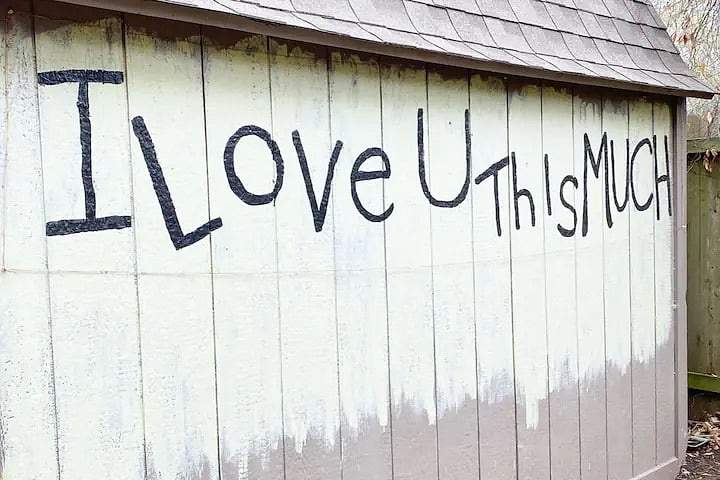 I Love U This MUCH